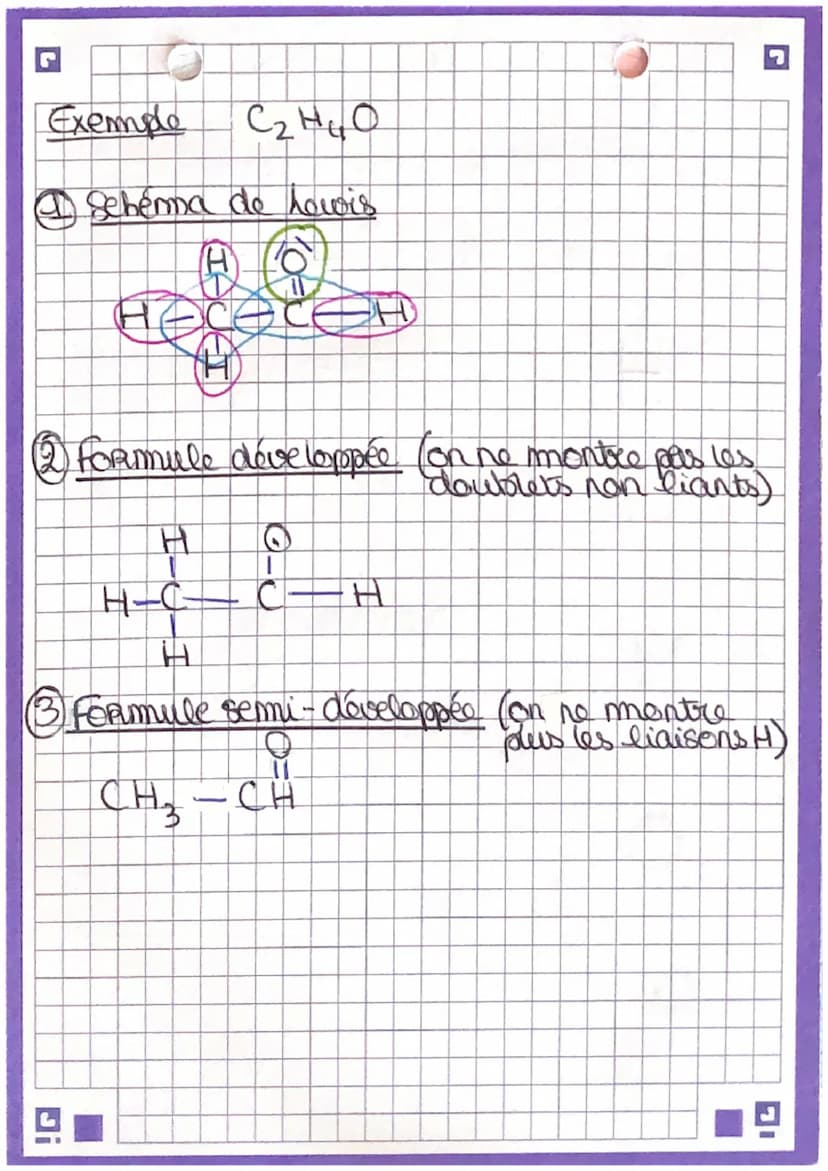 Exemple C2H4O
① Schéma de Lewis
H O
H – C – C – H
H
② formule développée (on ne montre pas les
doublets non liants)
H O
H–C— C —H
H
③ formule semi-développée (on ne montre
plus les liaisons H)
O
CH3 – CH